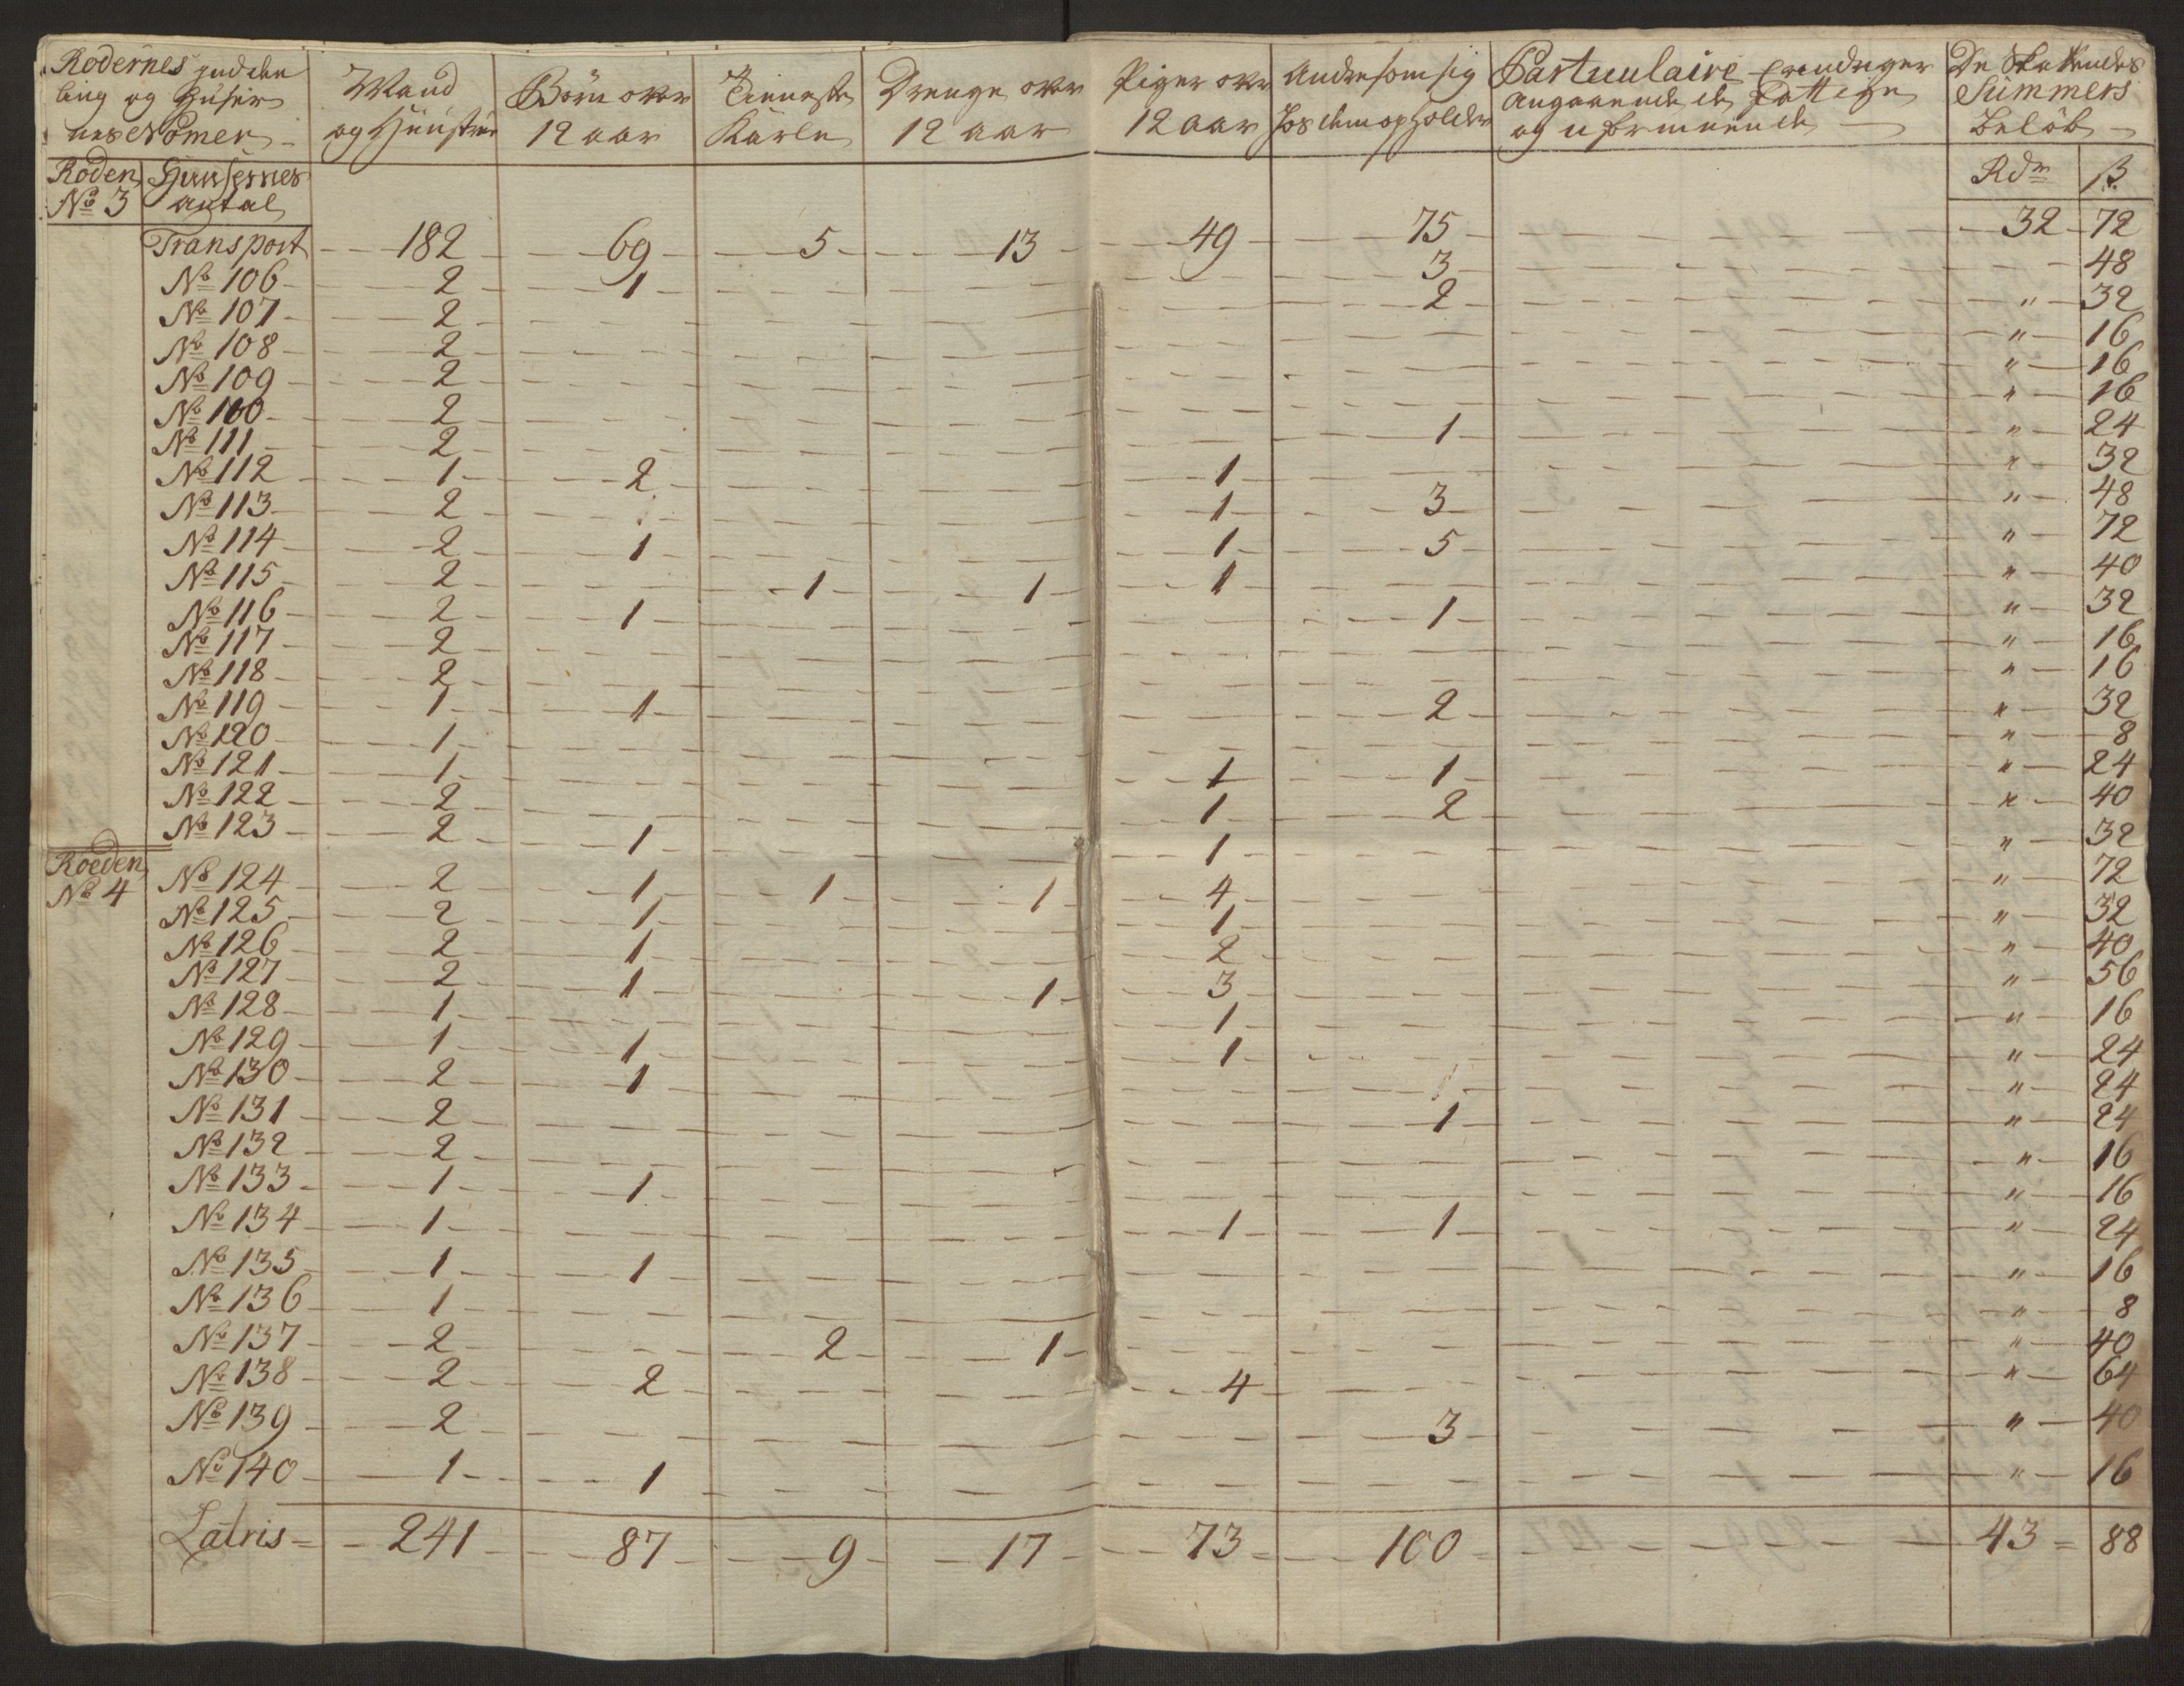 Rodernes inddee
ling og Huser
nes Nomer
Mand
og Hüüstrue
Börn over
12 aar
Tieneste
Karle
Drenge over
12 aar
Piger over
12 aar
Andre som sig
hos dem opholder
Partuulaire Erindringer
Angaaende de Fattige
og uformuende
De Skattendes
Summers
belöb
Roden No 3 Huusernes antal Rdr ß
Transport 182 69 5 13 49 75 32 72
No 106 2 1 3 48
No 107 2 2 " 32
No 108 2 " 16
No 109 2 " 16
No 100 2 " 16
No 111 2 1 " 24
No 112 1 2 1 " 32
No 113 2 1 3 " 48
No 114 2 1 1 5 " 72
No 115 2 1 1 1 " 40
No 116 2 1 1 " 32
No 117 2 " 16
No 118 2 " 16
No 119 1 1 2 " 32
No 120 1 " 8
No 121 1 1 1 " 24
No 122 2 1 2 " 40
No 123 2 1 1 " 32
Roeden No 4
No 124 2 1 1 1 4 " 72
No 125 2 1 1 " 32
No 126 2 1 2 " 40
No 127 2 1 1 3 " 56
No 128 1 1 " 16
No 129 1 1 1 " 24
No 130 2 1 " 24
No 131 2 1 " 24
No 132 2 " 16
No 133 1 1 " 16
No 134 1 1 1 " 24
No 135 1 1 " 16
No 136 1 " 8
No 137 2 2 1 " 40
No 138 2 2 4 " 64
No 139 2 3 " 40
No 140 1 1 " 16
Latris 241 87 9 17 73 100 43 88